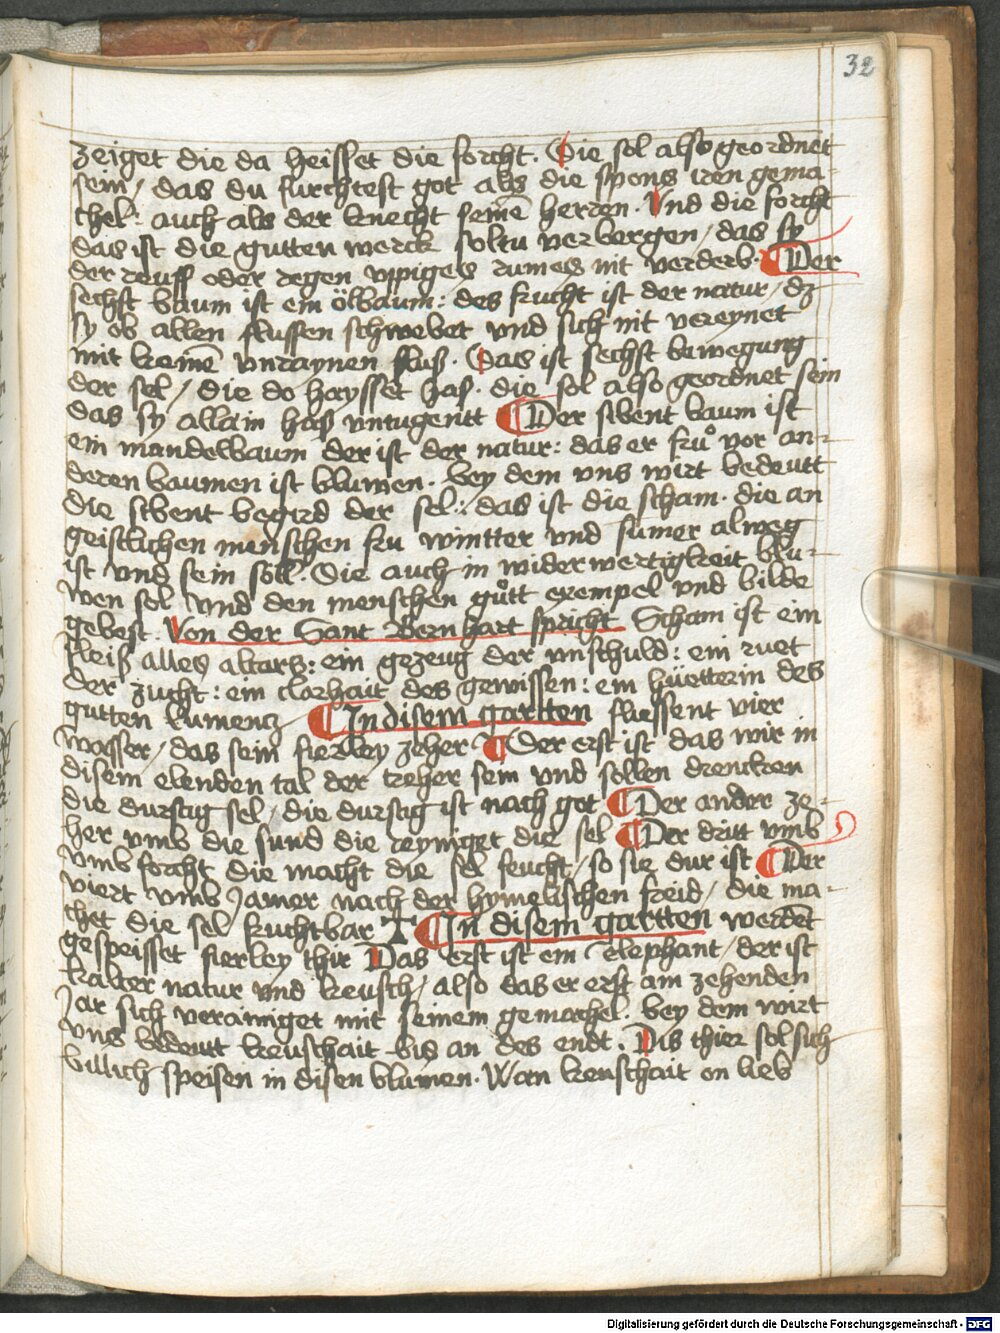 32
zeiget die da heisset die forcht. Die sol also geordnet
sein / das du furchtest got als die spons iren gema-
chel: auch als der knecht seinē herren. Vnd die forcht
das ist die gutten werck soltu verbergen / das sy
der reuff oder regen vppiges rumes nit verderb. ¶ Der
sechst baum ist ein ölbaum: des frucht ist der natur / dz
sy ob allen flussen schwebet vnd sich nit vereynet
mit keinē vnraynen fluß. Das ist sechst bewegung
der sel / die do haysset haß. die sol also geordnet sein
das sy allain haß vntugentt ¶ Der sibent baum ist
ein mandelbaum der ist der natur: das er frů vor an-
deren baumen ist blumen. bey dem vns wirt bedeutt
die sibent begird der sel: das ist die scham. die an
geistlichen menschen fru wintter vnd sumer alweg
ist vnd sein soll. Die auch in widerwertigkeit blu-
wen sol vnd den menschen gůtt exempel vnd bilde
gebest. Von der Sant Bernhart spricht Scham ist ein
fleiß alles altars: ein gezeug der vnschuld: ein ruet
der zucht: ein clorhait des gewissen: ein hüetterin des
gutten lumencz ¶ In disem gartten fliessent vier
wasser / das sein fierley zeher ¶ Der erst ist das wir in
disem elenden tal der treher sein vnd sollen drencken
die durstig sel / die durstig ist nach got ¶ Der ander ze-
her vmb die sund die reyniget die sel ¶ Der dritt vmb
vmb forcht die macht die sel feucht / so sie dur ist ¶ Der
viert vmb Jamer nach der hymelischen freid / die ma-
chet die sel fruchtbar ¶ In disem gartten werdēt
gespeisset fierley thir Das erst ist ein elephant / der ist
kalter natur vnd keusch / also das er erst am zehenden
Jar sich verainiget mit seinem gemachel. bey dem wirt
vns bedeutt keuschait bis an des endt. Dis thier sol sich
billich speisen in disen blumen. Wan keuschait on lieb
Digitalisierung gefördert durch die Deutsche Forschungsgemeinschaft - DFG